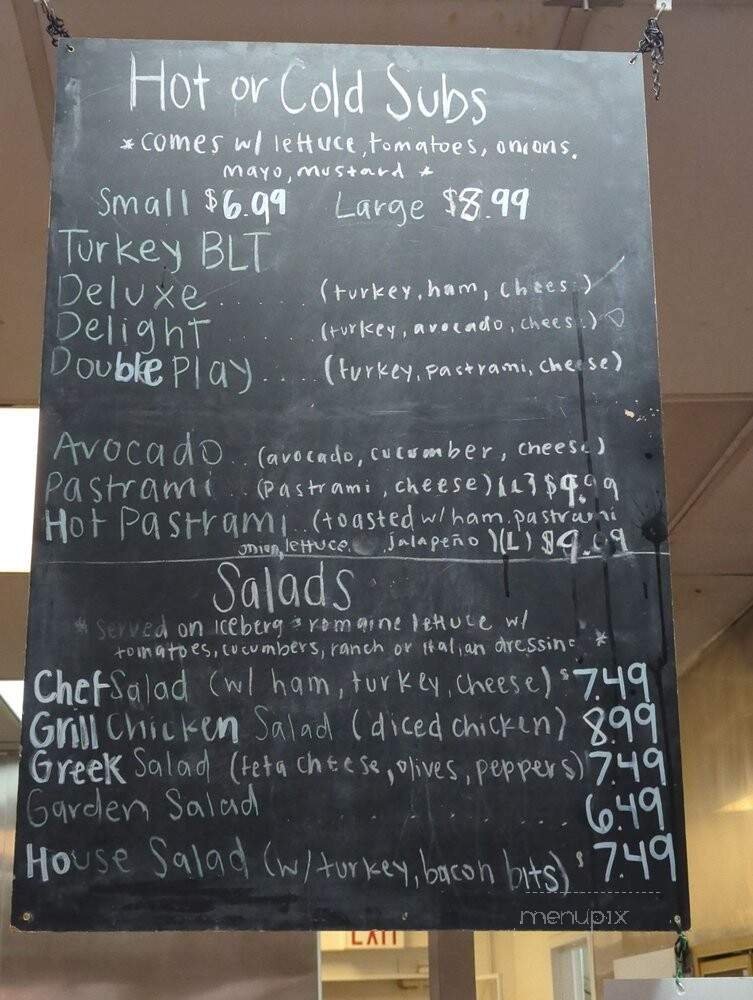 Hot or Cold Subs
* comes w/ lettuce, tomatoes, onions,
mayo, mustard *
Small $6.99 Large $8.99
Turkey BLT
Deluxe ...... (turkey, ham, cheese)
Delight ...... (turkey, avocado, cheese)
Double Play ..... (turkey, pastrami, cheese)
Avocado .. (avocado, cucumber, cheese)
Pastrami .. (Pastrami, cheese) (L) $9.99
Hot Pastrami .. (toasted w/ ham, pastrami
onion, lettuce, jalapeño) (L) $9.09
Salads
* Served on iceberg & romaine lettuce w/
tomatoes, cucumbers, ranch or italian dressing *
Chef Salad (w/ ham, turkey, cheese) $7.49
Grill Chicken Salad (diced chicken) 8.99
Greek Salad (feta cheese, olives, peppers) 7.49
Garden Salad ......... 6.49
House Salad (w/ turkey, bacon bits) $7.49
menupix
EXIT